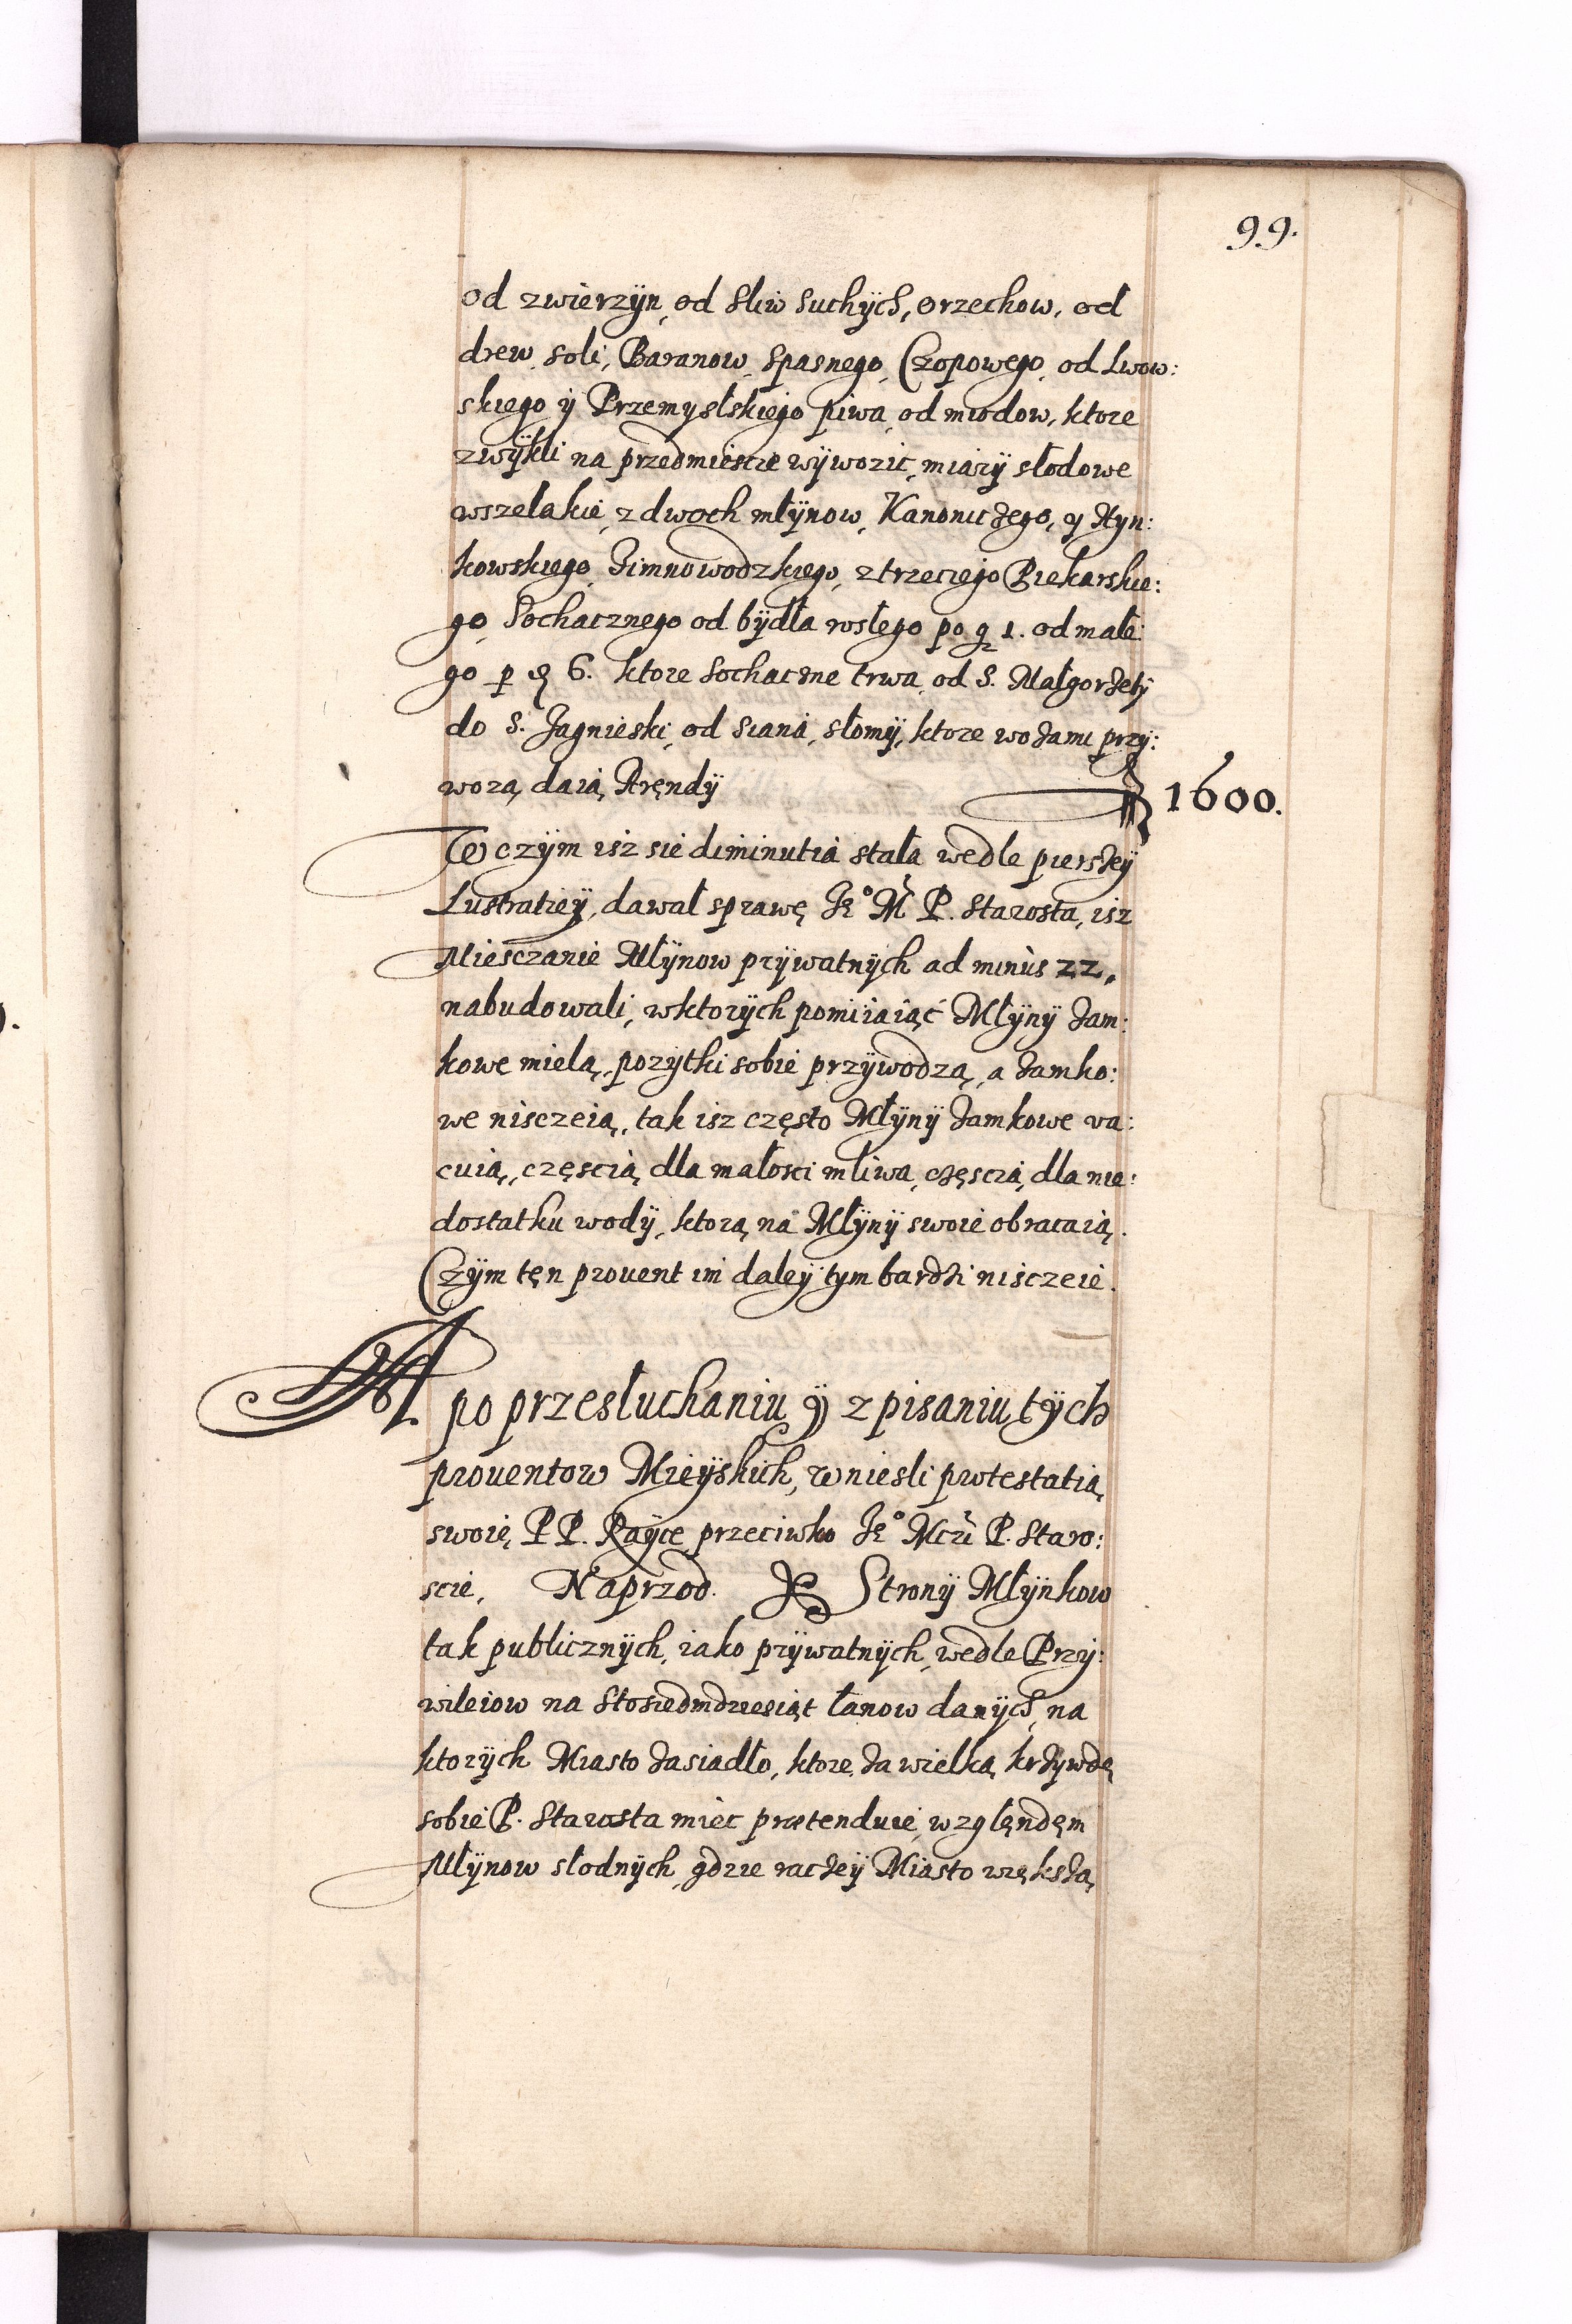 99.
od zwierzÿn, od Sliw Suchÿch, orzechow, od
drew, soli, Baranow, Spasnego, Czopowego, od Lwow:
skiego ÿ Przemyslskiego piwa, od miodow, ktore
zwÿkli na przedmiescie wÿwozic, miarÿ słodowe
wszelakie, z dwoch młÿnow, Kanoniczego, y Hyn:
kowskiego, Zimnowodzkiego, z trzeciego Piekarskie:
go, Sochacznego od bÿdła wslego po g 1. od małe:
go p 6. ktore Sochaczne trwa, od S. Małgorzetÿ
do S. Jagnieski, od siana, słomÿ, ktore wozami przÿ:
wozą, daią Aręndÿ 1600.
W czÿm isz sie diminutia stała wedle pierszeÿ
Lustratieÿ, dawał sprawę Je° Mć P. Starosta, isz
Miesczanie Młÿnow prÿwatnÿch ad minùs 22,
nabudowali, w ktorÿch pomiiaiąć Młÿnÿ Zam:
kowe mielą, pozÿtki sobie przÿwodzą, a Zamko:
we nisczeią, tak isz często Młÿnÿ Zamkowe va:
cuią, częscią dla małosci mliwa, częscią dla nie:
dostatku wodÿ, ktorą na Młÿnÿ swoie obracaią.
Czÿm tęn prouent im daleÿ tym bardzi nisczeie.
A po przesłuchaniu ÿ zpisaniu tÿch
prouentow Mieÿskich, wniesli protestatią
swoię PP. Raÿce przeciwko Je° Mczi P. Staro:
scie. Naprzod. Stronÿ Młÿnkow
tak publicznÿch, iako prÿwatnÿch, wedle Przÿ:
wileiow na Stosiedmdziesiąt łanow danÿch, na
ktorÿch Miasto zasiadło, ktore za wielką krzÿwdę
sobie P. Starosta miec prætenduie, względęm
Młÿnow słodnÿch, gdzie raczeÿ Miasto większą